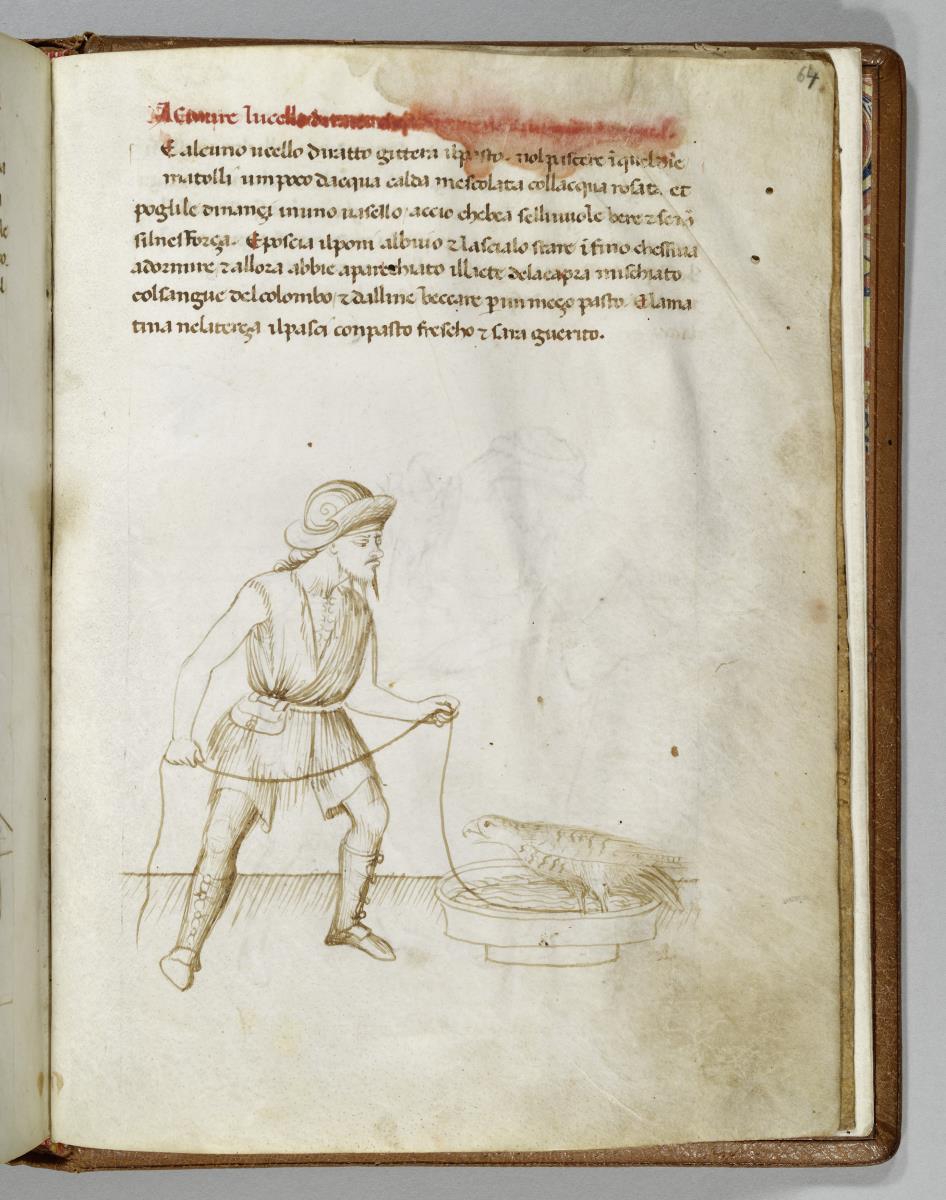 64
A Curare lucello
E alcuno ucello diratto gittera ilpasto. nol pascere i quel
matolli um poco dacqua calda mescolata collacqua rosata et
poglile dinançi inuno uasello accio chebea selliuuole bere ⁊
silnesforça. E poscia ilponi albuio ⁊ lascialo stare ifino chessiua
adormire ⁊ allora abbie aparechiato illacte dela capra mischiato
colsangue del colombo ⁊ dalline beccare p un meço pasto. E lama
tina nelatereça ilpasci conpasto frescho ⁊ sara guerito.